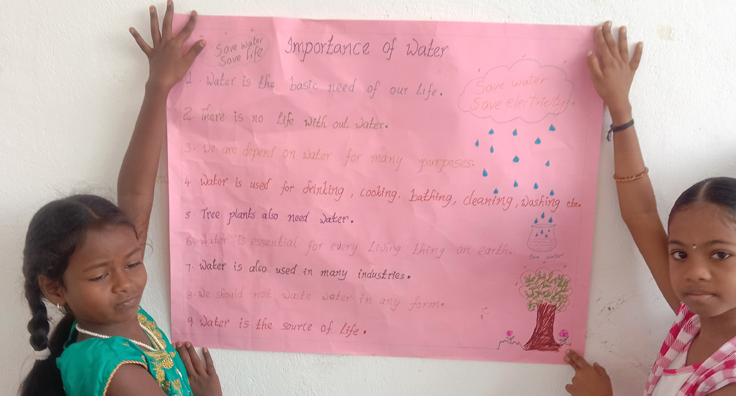 Save water
Save life
Importance of Water
1. Water is the basic need of our life.
2 There is no life with out water.
3. We are depend on water for many purposes.
4 Water is used for drinking, cooking. bathing, cleaning, washing etc.
5 Tree plants also need water.
6. Water is essential for every living thing on earth.
7. Water is also used in many industries.
8. We should not waste water in any form.
9 Water is the source of life.
Save water
Save electricity.
Save water